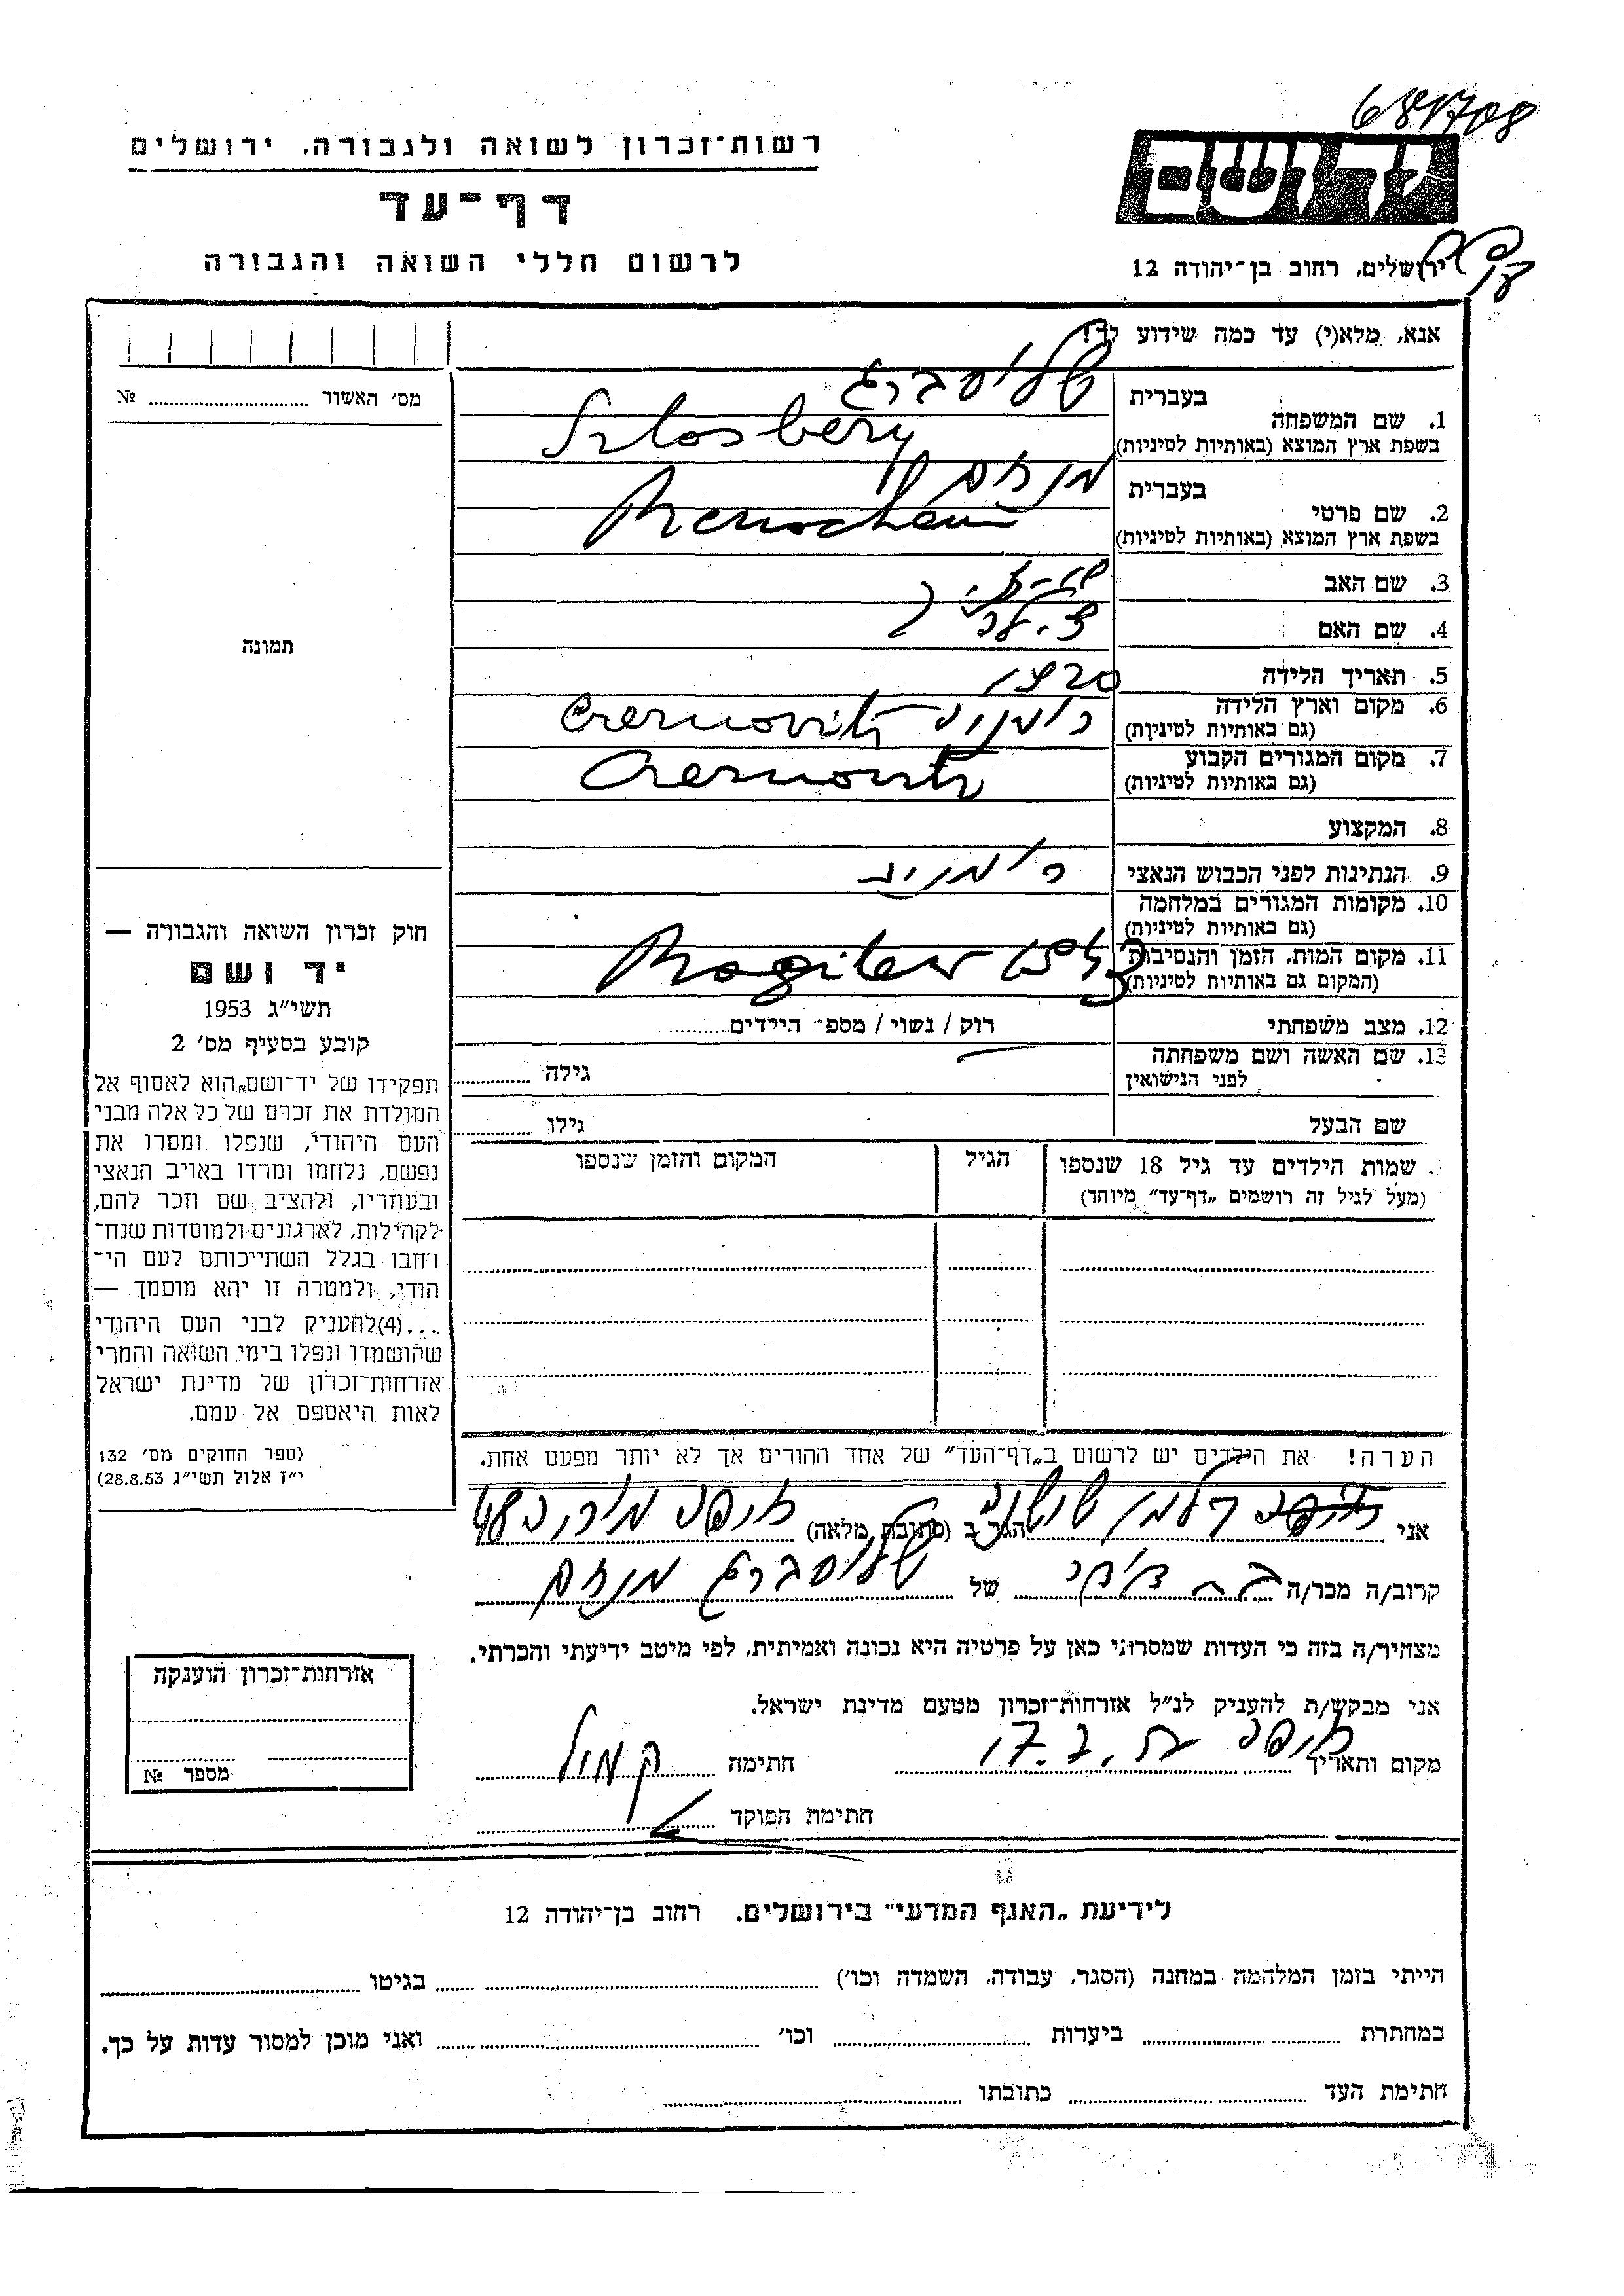 681708
רשות־זכרון לשואה ולגבורה, ירושלים
דף־עד
לרשום חללי השואה והגבורה
ידושם
ירושלים, רחוב בן־יהודה 12
אנא, מלא(י) עד כמה שידוע לך!
מס' האשור № 
1. שם המשפחה
בעברית שלוסברג
בשפת ארץ המוצא (באותיות לטיניות) Szlosberg
2. שם פרטי
בעברית מנחם
בשפת ארץ המוצא (באותיות לטיניות) Menachem
3. שם האב
4. שם האם
5. תאריך הלידה 1920
6. מקום וארץ הלידה
(גם באותיות לטיניות) רומניה Czernovitz
7. מקום המגורים הקבוע
(גם באותיות לטיניות) Czernovitz
8. המקצוע
9. הנתינות לפני הכבוש הנאצי רומניה
10. מקומות המגורים במלחמה
(גם באותיות לטיניות)
11. מקום המות, הזמן והנסיבות
(המקום גם באותיות לטיניות) Mogilew
12. מצב משפחתי רוק / נשוי / מספ־ היידים
13. שם האשה ושם משפחתה
לפני הנישואין גילה
שם הבעל גילו
שמות הילדים עד גיל 18 שנספו הגיל המקום והזמן שנספו
(מעל לגיל זה רושמים „דף־עד" מיוחד)
הערה! את הילדים יש לרשום ב„דף־העד" של אחד ההורים אך לא יותר מפעם אחת.
תמונה
חוק זכרון השואה והגבורה —
יד ושם
תשי"ג 1953
קובע בסעיף מס' 2
תפקידו של יד־ושם הוא לאסוף אל
המולדת את זכרם של כל אלה מבני
העם היהודי, שנפלו ומסרו את
נפשם, נלחמו ומרדו באויב הנאצי
ובעוזריו, ולהציב שם וזכר להם,
לקהילות, לארגונים ולמוסדות שנח־
רבו בגלל השתייכותם לעם הי־
הודי, ולמטרה זו יהא מוסמך —
...(4)להעניק לבני העם היהודי
שהושמדו ונפלו בימי השואה והמרי
אזרחות־זכרון של מדינת ישראל
לאות היאספם אל עמם.
(ספר החוקים מס' 132
י"ז אלול תשי"ג 28.8.53)
אני הגר ב (כתובת מלאה) חיפה
קרוב/ה מכר/ה של שלוסברג מנחם
מצהיר/ה בזה כי העדות שמסרתי כאן על פרטיה היא נכונה ואמיתית, לפי מיטב ידיעתי והכרתי.
אני מבקש/ת להעניק לנ"ל אזרחות־זכרון מטעם מדינת ישראל.
מקום ותאריך חיפה חתימה
חתימת הפוקד
אזרחות־זכרון הוענקה
מספר №
לידיעת „האגף המדעי" בירושלים. רחוב בן־יהודה 12
הייתי בזמן המלחמה במחנה (הסגר, עבודה, השמדה וכו') בגיטו
במחתרת ביערות וכו' ואני מוכן למסור עדות על כך.
חתימת העד כתובתו